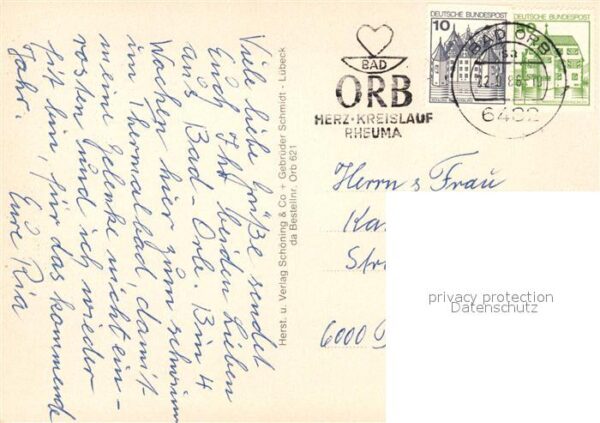 Viele liebe Grüße sendet
Euch Ihr beiden Lieben
aus Bad-Orb. Bin 4
Wochen hier zum schwimm
im Thermalbad, damit
meine Gelenke nicht ein-
rosten und ich wieder
fit bin, für das kommende
Jahr.
Eure Ria
Herst. u. Verlag Schöning & Co + Gebrüder Schmidt - Lübeck
da Bestellnr. Orb 621
BAD
ORB
HERZ·KREISLAUF
RHEUMA
10
DEUTSCHE BUNDESPOST
DEUTSCHE BUNDESPOST
BAD ORB
6482
Herrn & Frau
Ka
Str
6000
privacy protection
Datenschutz